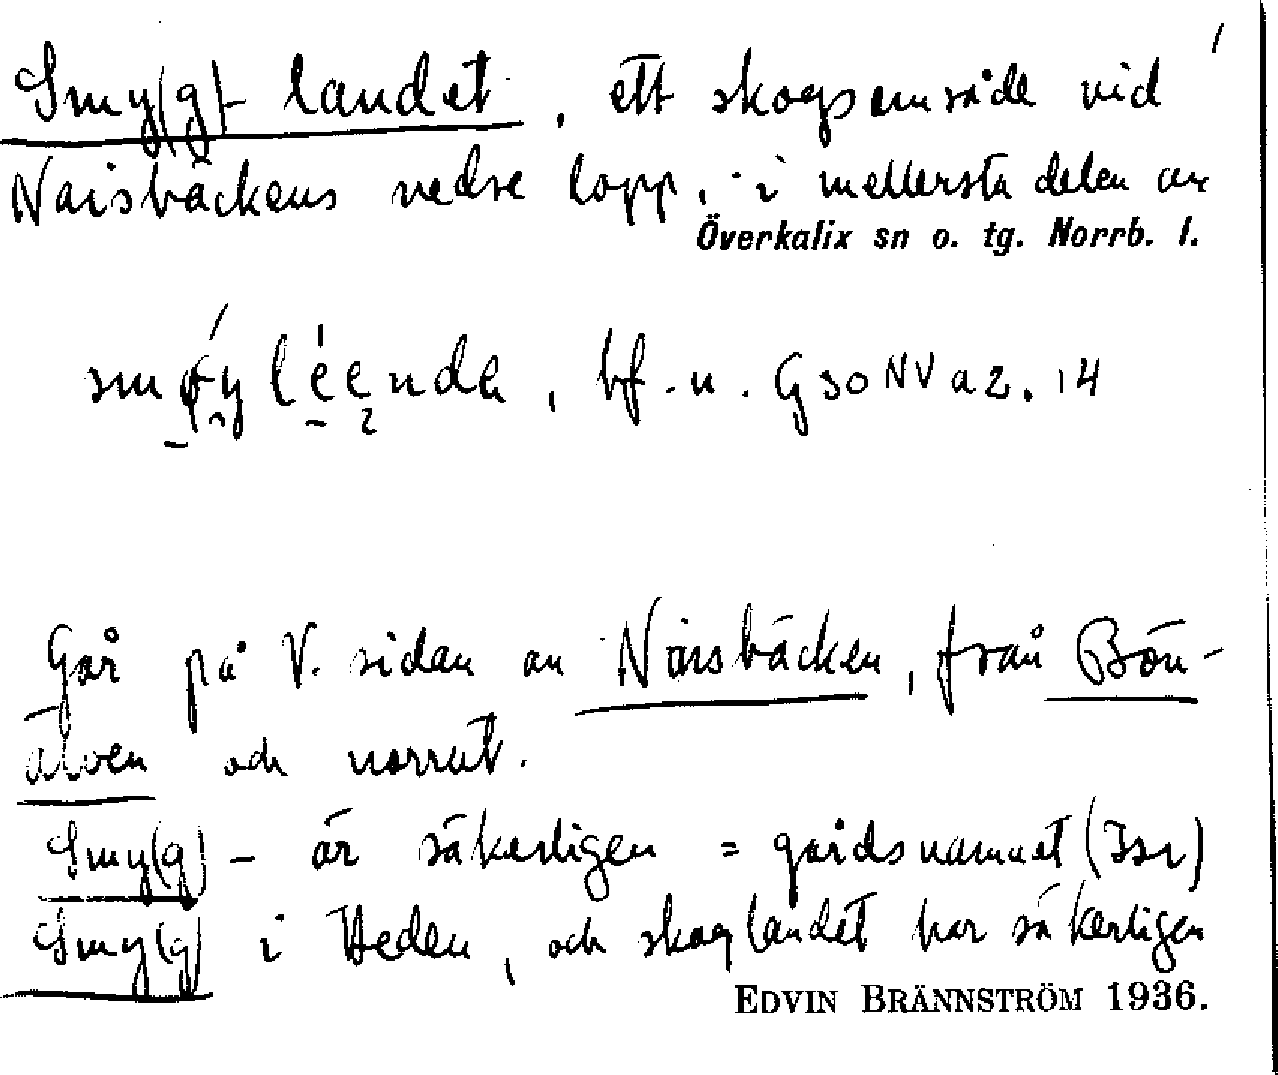 Smy(g)-landet, ett skogsområde vid
Naisbäckens nedre lopp, i mellersta delen av
Överkalix sn o. tg. Norrb. l.
bf. n. G 30 NV a 2. 14
Går på V. sidan av Naisbäcken, från Bön-
älven och norrut.
Smy(g)- är säkerligen = gårdsnamnet
Smy(g) i Heden, och skoglandet har säkerligen
EDVIN BRÄNNSTRÖM 1936.